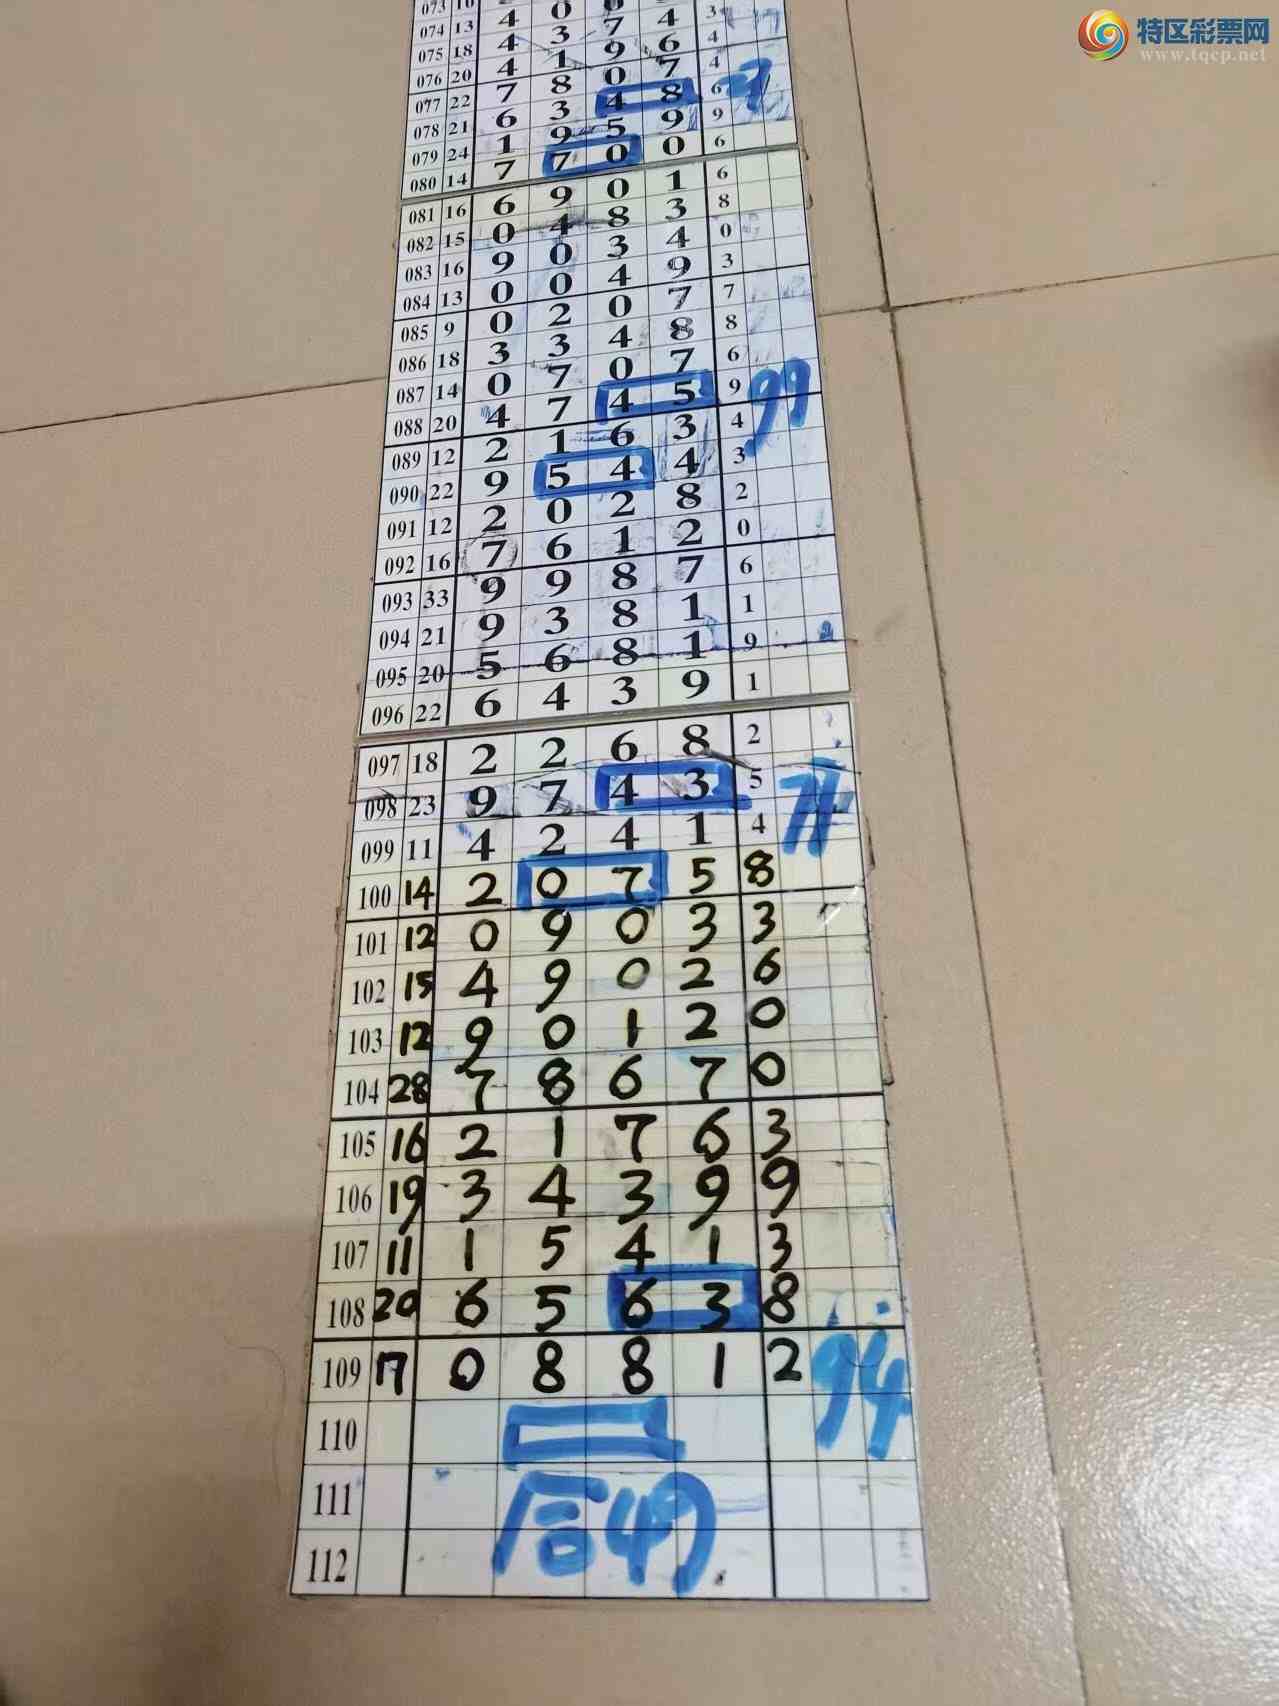 特区彩票网
www.tqcp.net
074 13 4 3 7 4 3
075 18 4 1 9 6 4
076 20 4 8 0 7 4
077 22 7 3 4 8 6
078 21 6 9 5 9 9
079 24 1 7 0 0 6
080 14 7
081 16 6 9 0 1 6
082 15 0 4 8 3 8
083 16 9 0 3 4 0
084 13 0 0 4 9 3
085 9 0 2 0 7 7
086 18 3 3 4 8 8
087 14 0 7 0 7 6
088 20 4 7 4 5 9
99
089 12 2 1 6 3 4
090 22 9 5 4 4 3
091 12 2 0 2 8 2
092 16 7 6 1 2 0
093 33 9 9 8 7 6
094 21 9 3 8 1 1
095 20 5 6 8 1 9
096 22 6 4 3 9 1
097 18 2 2 6 8 2
098 23 9 7 4 3 5
77
099 11 4 2 4 1 4
100 14 2 0 7 5 8
101 12 0 9 0 3 3
102 15 4 9 0 2 6
103 12 9 0 1 2 0
104 28 7 8 6 7 0
105 16 2 1 7 6 3
106 19 3 4 3 9 9
107 11 1 5 4 1 3
108 20 6 5 6 3 8
109 17 0 8 8 1 2
94
110
111
合49
112